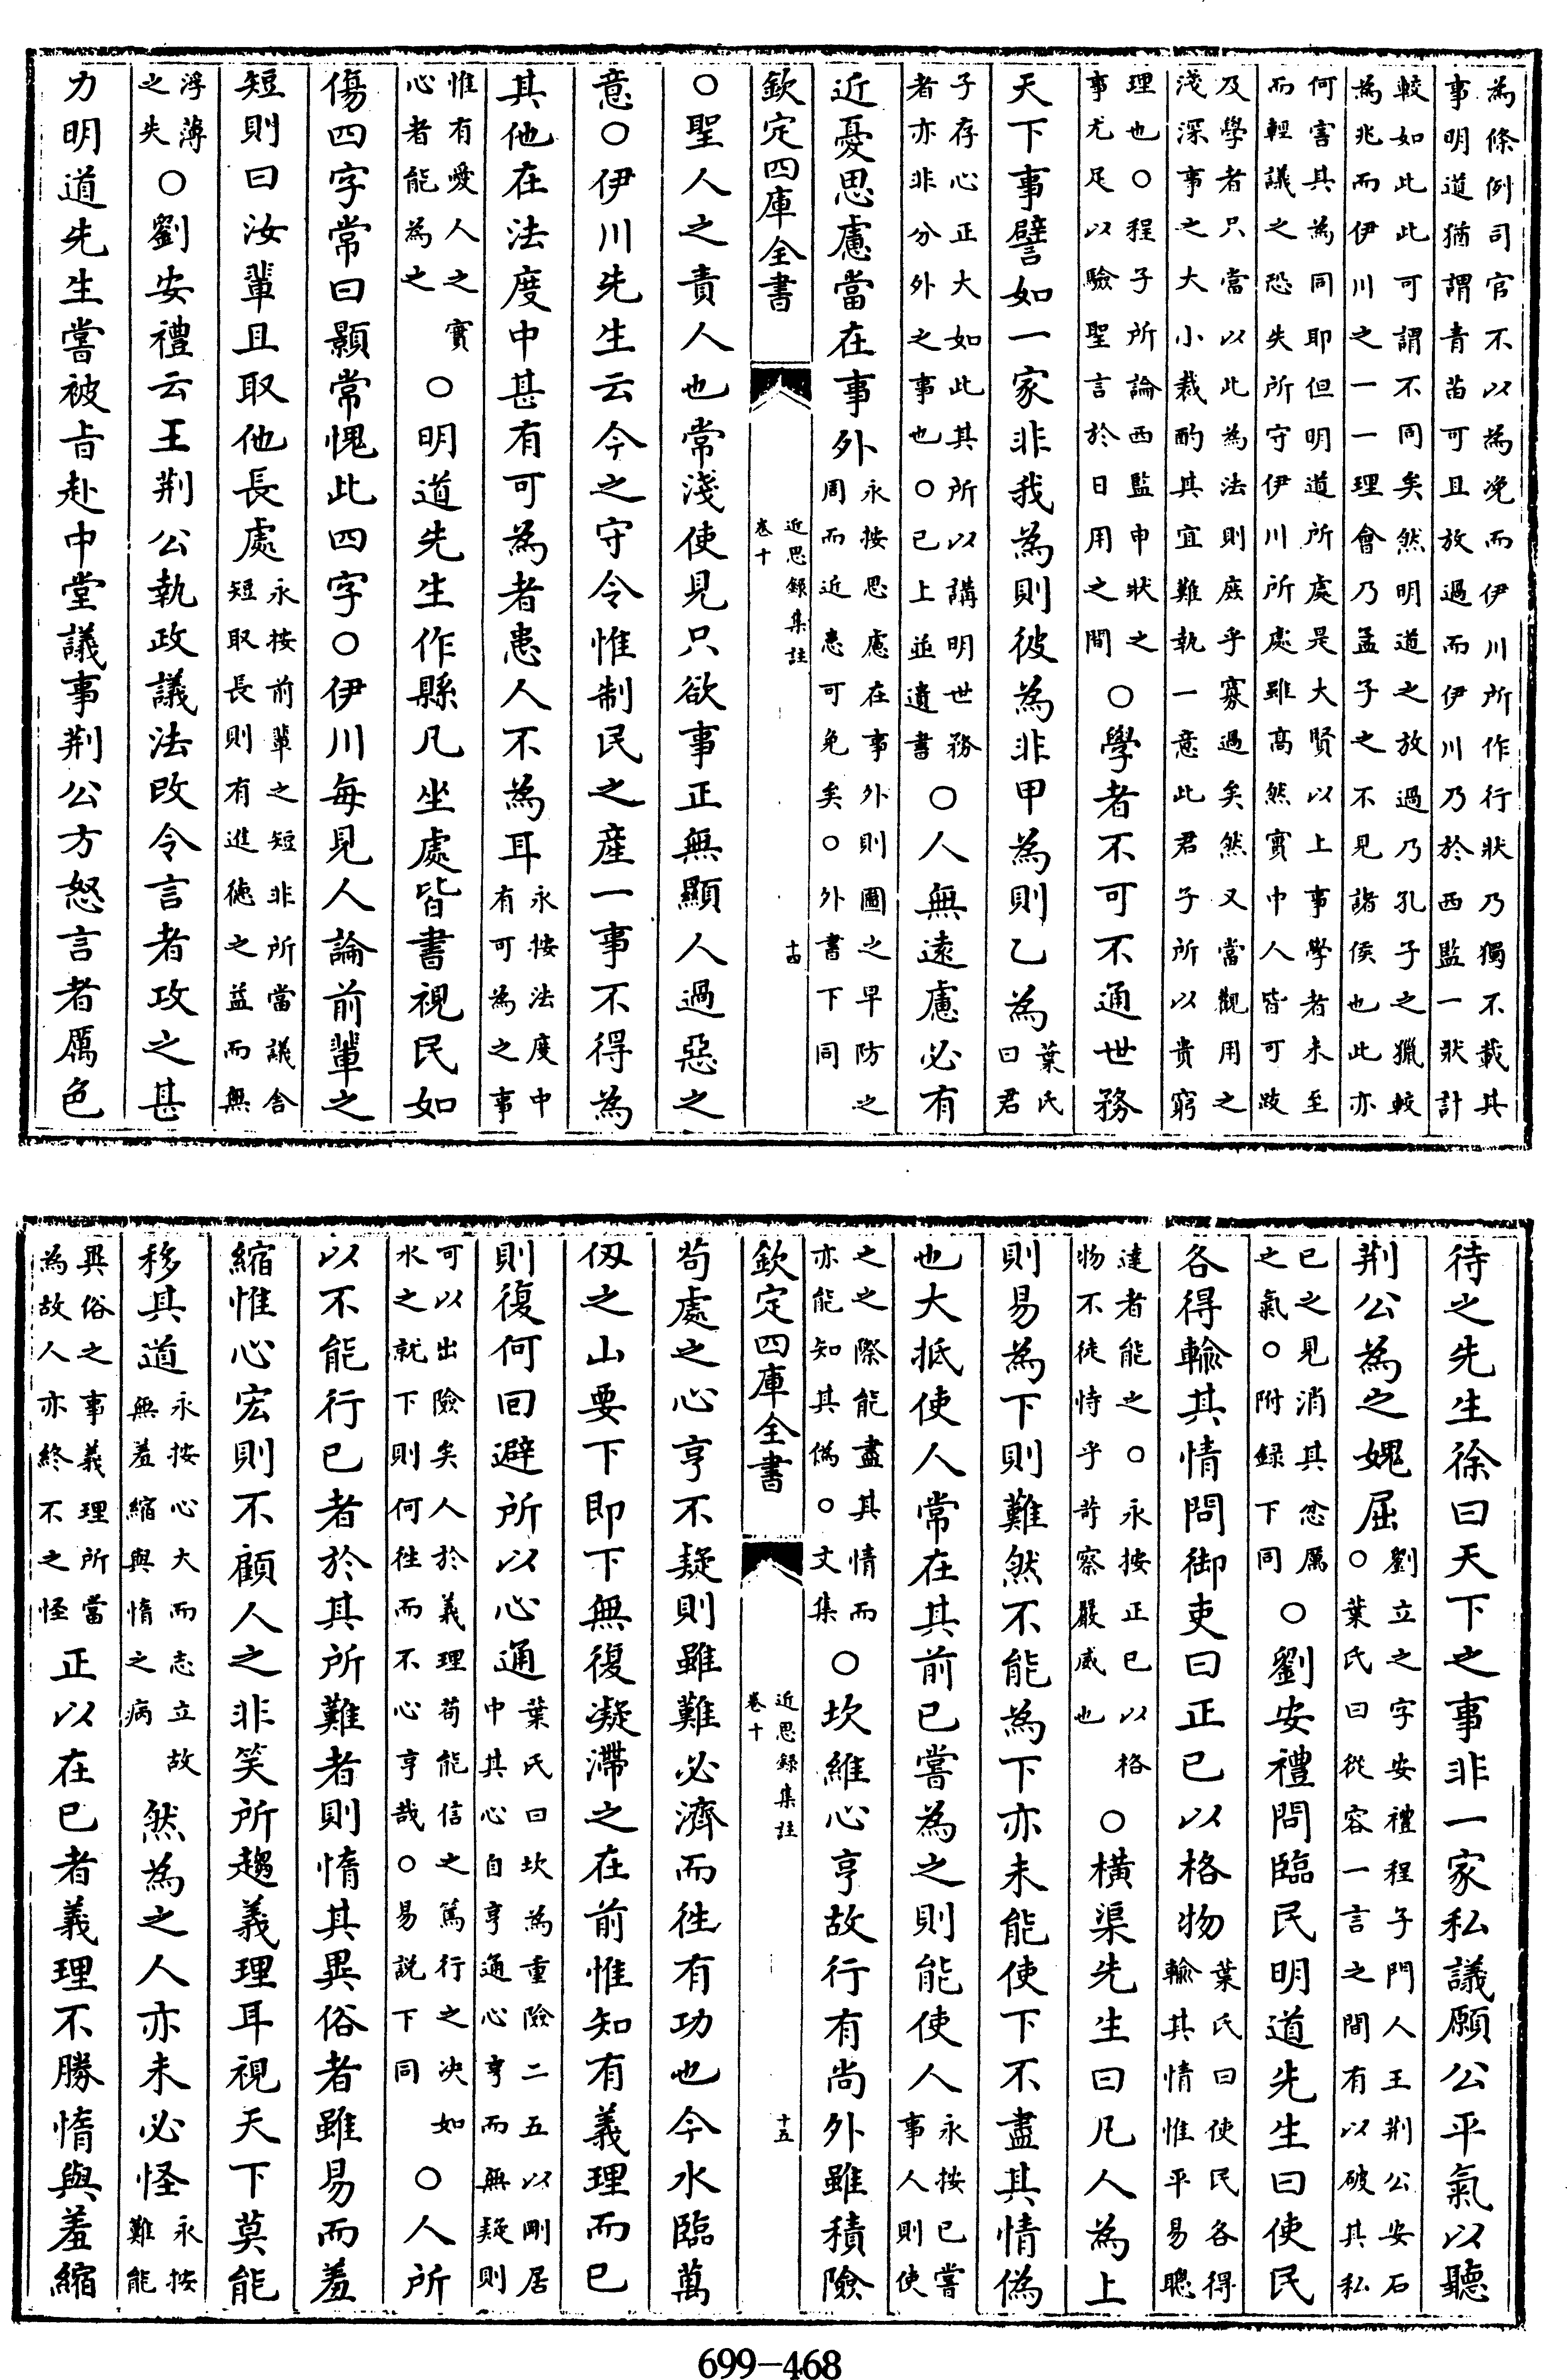 為條例司官不以為浼而伊川所作行狀乃獨不載其
事明道猶謂青苗可且放過而伊川乃於西監一狀計
較如此此可謂不同矣然明道之放過乃孔子之獵較
為兆而伊川之一一理會乃孟子之不見諸侯也此亦
何害其為同耶但明道所處是大賢以上事學者未至
而輕議之恐失所守伊川所處雖高然實中人皆可跂
及學者只當以此為法則庶乎寡過矣然又當觀用之
淺深事之大小裁酌其宜難執一意此君子所以貴窮
理也○程子所論西監申狀之事尤足以驗聖言於日用之間○學者不可不通世務
天下事譬如一家非我為則彼為非甲為則乙為葉氏曰君
子存心正大如此其所以講明世務者亦非分外之事也○已上並遺書○人無遠慮必有
近憂思慮當在事外永按思慮在事外則圖之早防之周而近患可免矣○外書下同
欽定四庫全書 近思録集註 卷十 十四
○聖人之責人也常淺使見只欲事正無顯人過惡之
意○伊川先生云今之守令惟制民之產一事不得為
其他在法度中甚有可為者患人不為耳永按法度中有可為之事
惟有愛人之實心者能為之○明道先生作縣凡坐處皆書視民如
傷四字常曰顥常愧此四字○伊川每見人論前輩之
短則曰汝輩且取他長處永按前輩之短非所當議舍短取長則有進德之益而無
浮薄之失○劉安禮云王荆公執政議法改令言者攻之甚
力明道先生嘗被旨赴中堂議事荆公方怒言者厲色
待之先生徐曰天下之事非一家私議願公平氣以聽
荆公為之媿屈劉立之字安禮程子門人王荆公安石○葉氏曰從容一言之間有以破其私
已之見消其忿厲之氣○附録下同○劉安禮問臨民明道先生曰使民
各得輸其情問御吏曰正已以格物葉氏曰使民各得輸其情惟平易聰
達者能之○永按正已以格物不徒恃乎苛察嚴威也○橫渠先生曰凡人為上
則易為下則難然不能為下亦未能使下不盡其情偽
也大抵使人常在其前已嘗為之則能使人永按已嘗事人則使
之之際能盡其情而亦能知其偽○文集○坎維心亨故行有尚外雖積險
欽定四庫全書 近思録集註 卷十 十五
苟處之心亨不疑則雖難必濟而往有功也今水臨萬
仭之山要下即下無復凝滯之在前惟知有義理而已
則復何囘避所以心通葉氏曰坎為重險二五以剛居中其心自亨通心亨而無疑則
可以出險矣人於義理苟能信之篤行之决如水之就下則何往而不心亨哉○易説下同○人所
以不能行已者於其所難者則惰其異俗者雖易而羞
縮惟心宏則不顧人之非笑所趨義理耳視天下莫能
移其道永按心大而志立故無羞縮與惰之病然為之人亦未必怪永按難能
異俗之事義理所當為故人亦終不之怪正以在已者義理不勝惰與羞縮
699-468